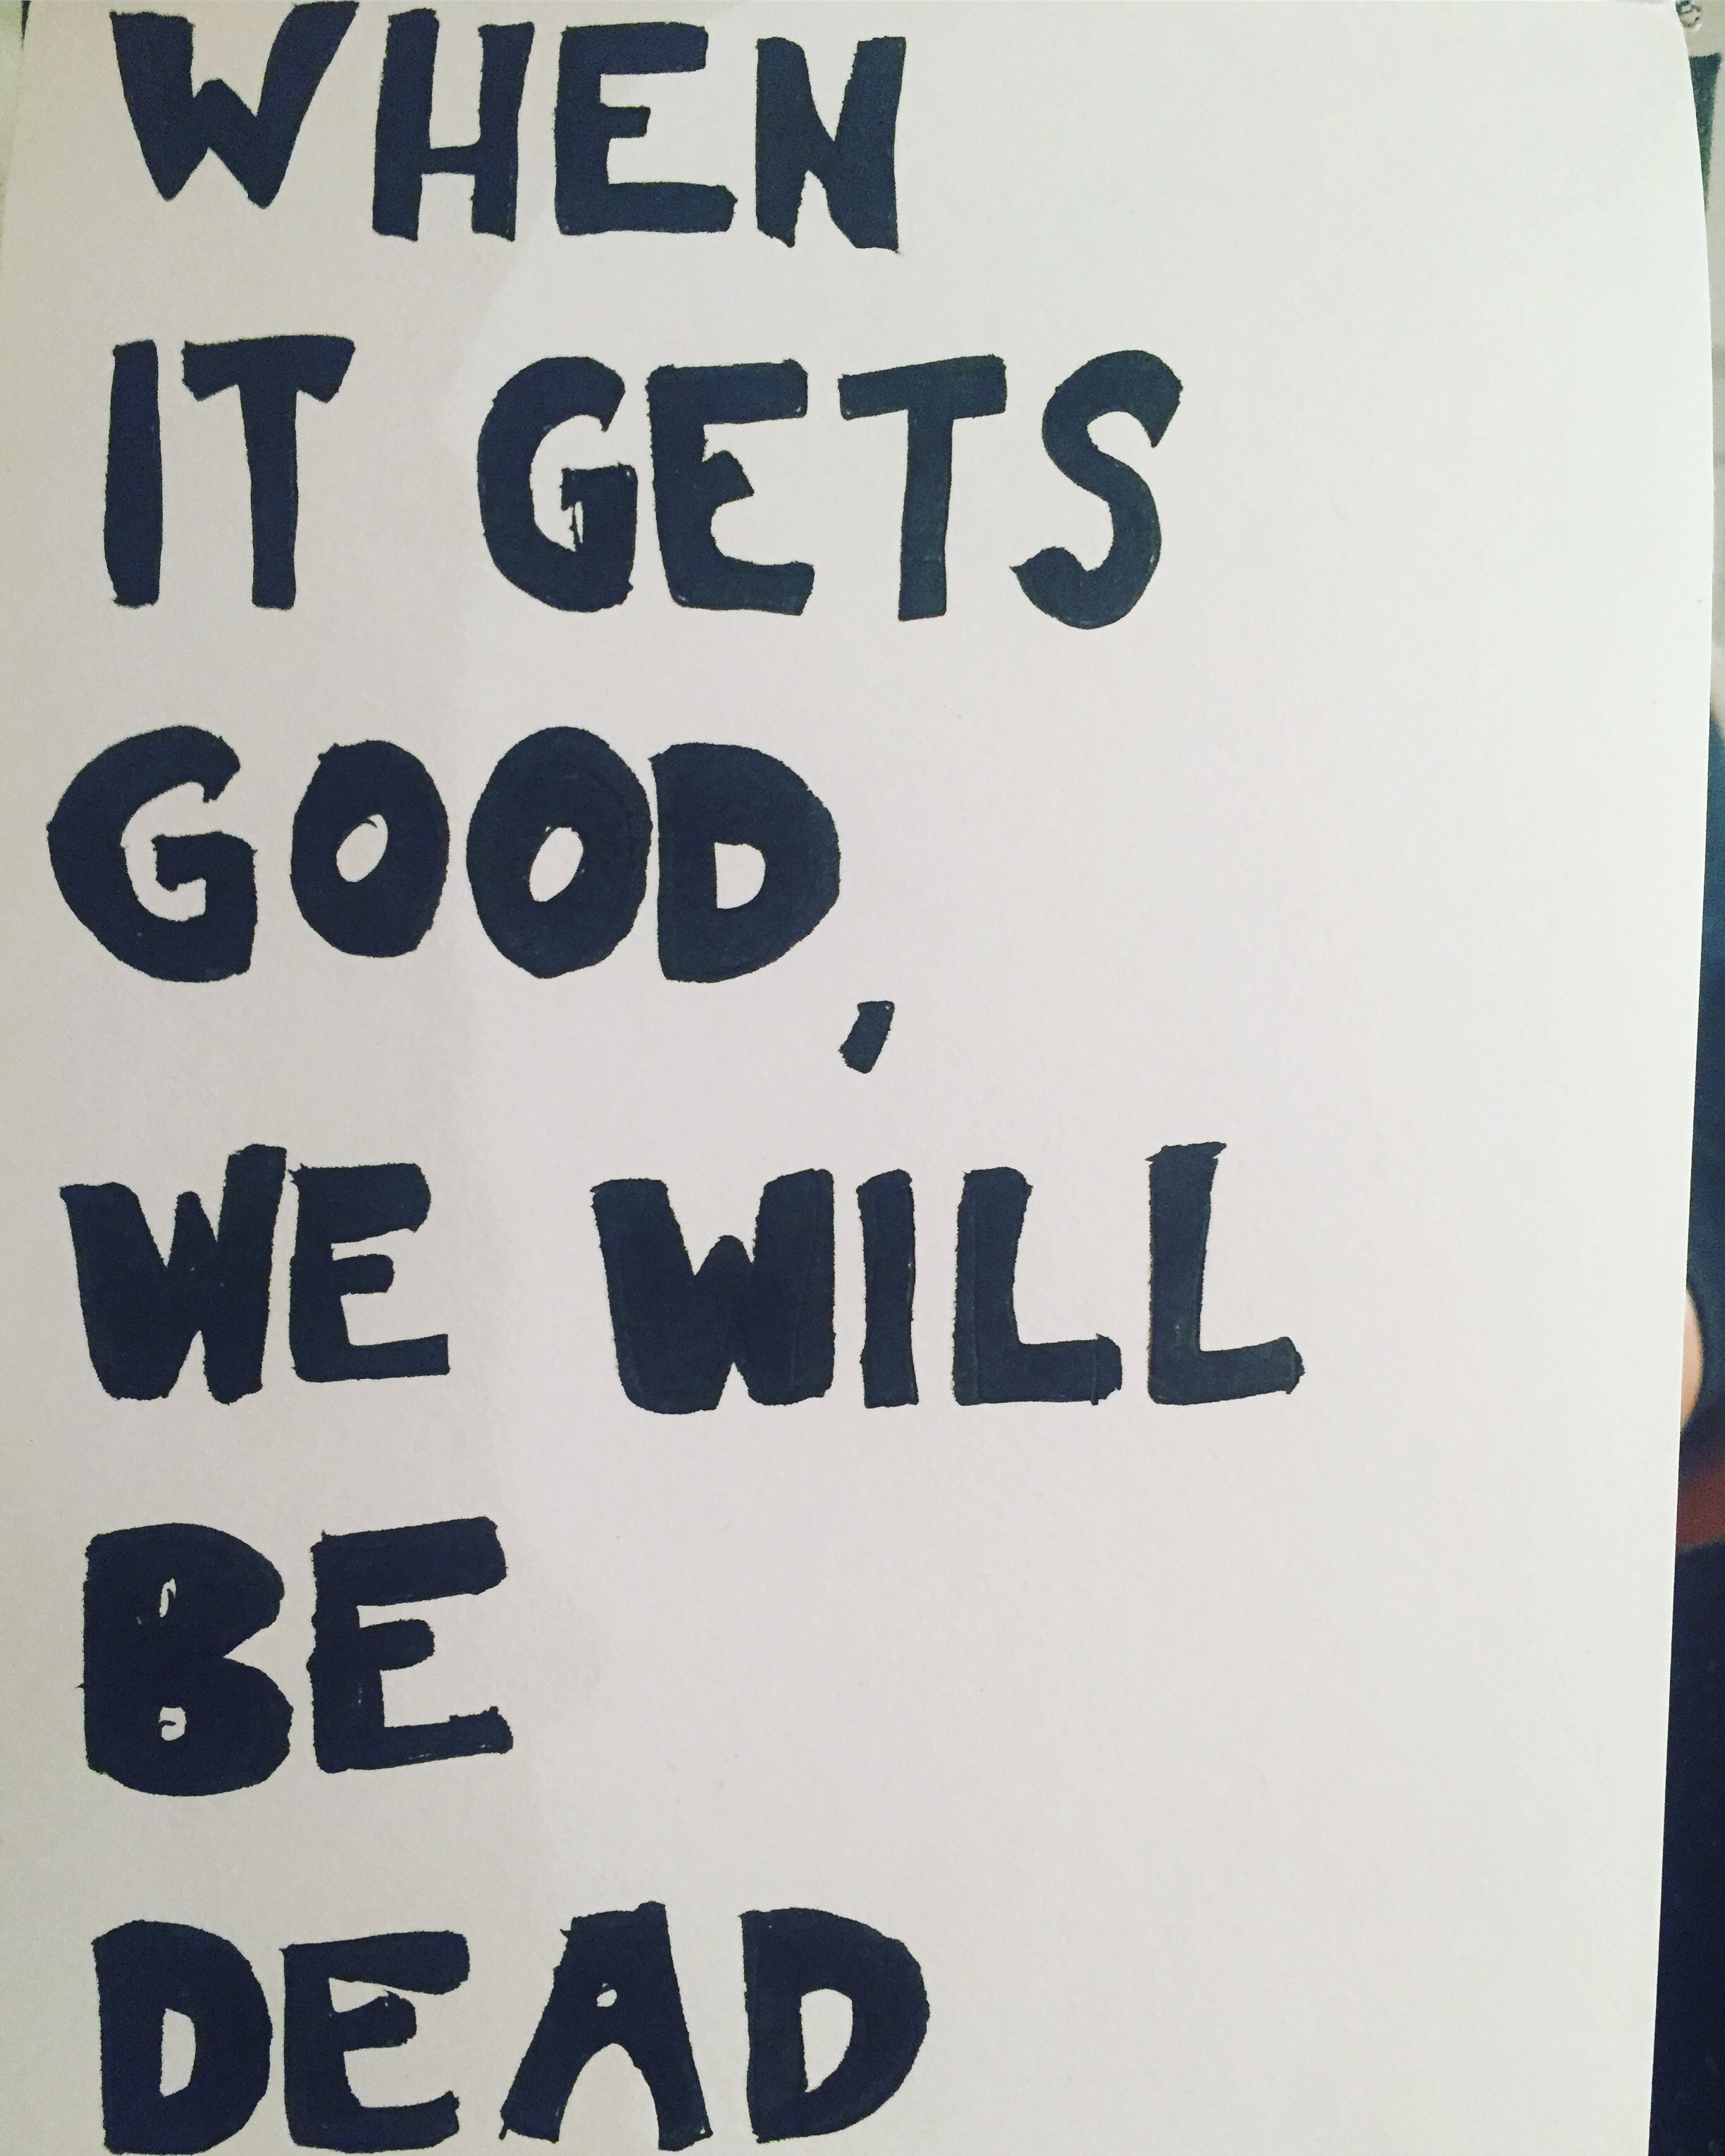 WHEN
IT GETS
GOOD,
WE WILL
BE
DEAD